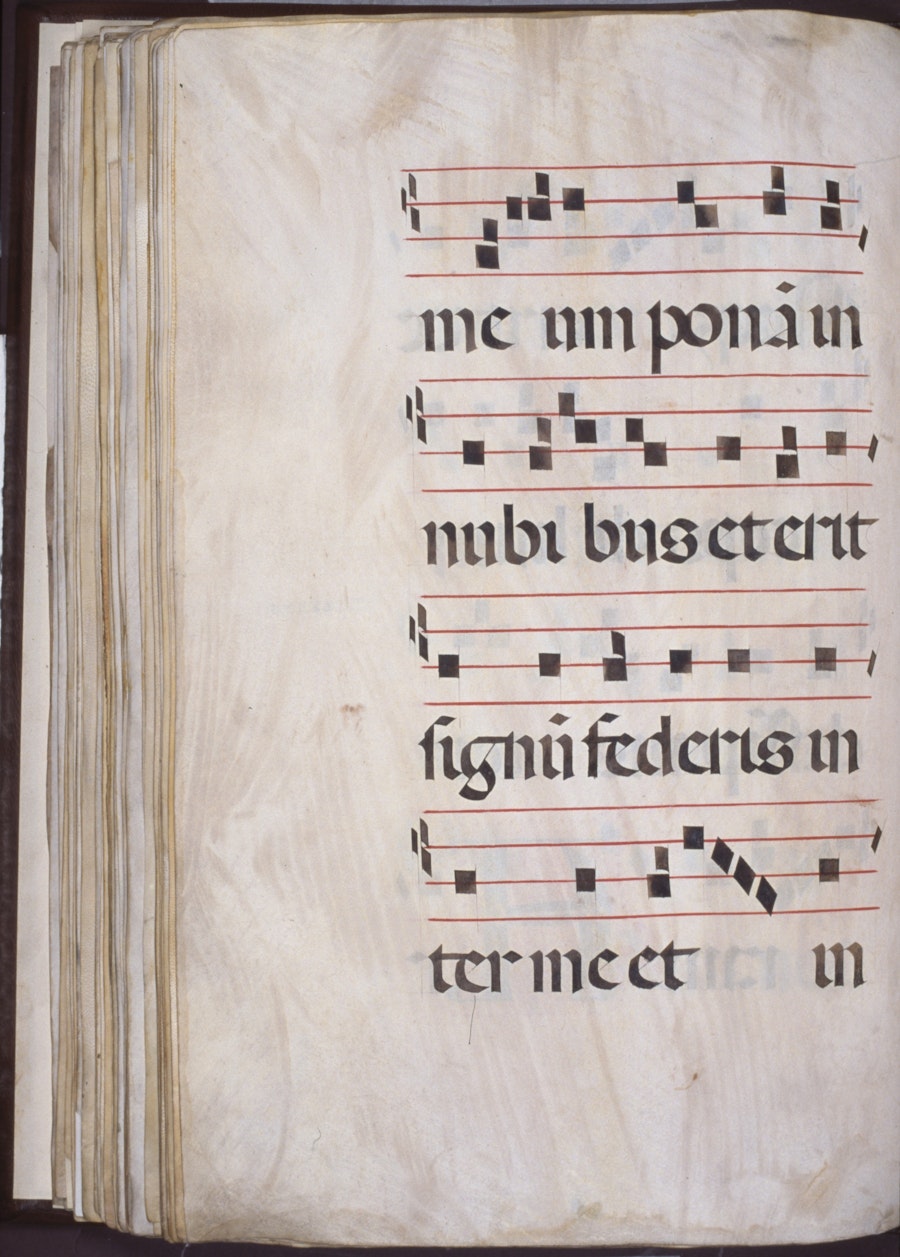 me um ponā in
nubi bus et erit
signū federis in
ter me et in